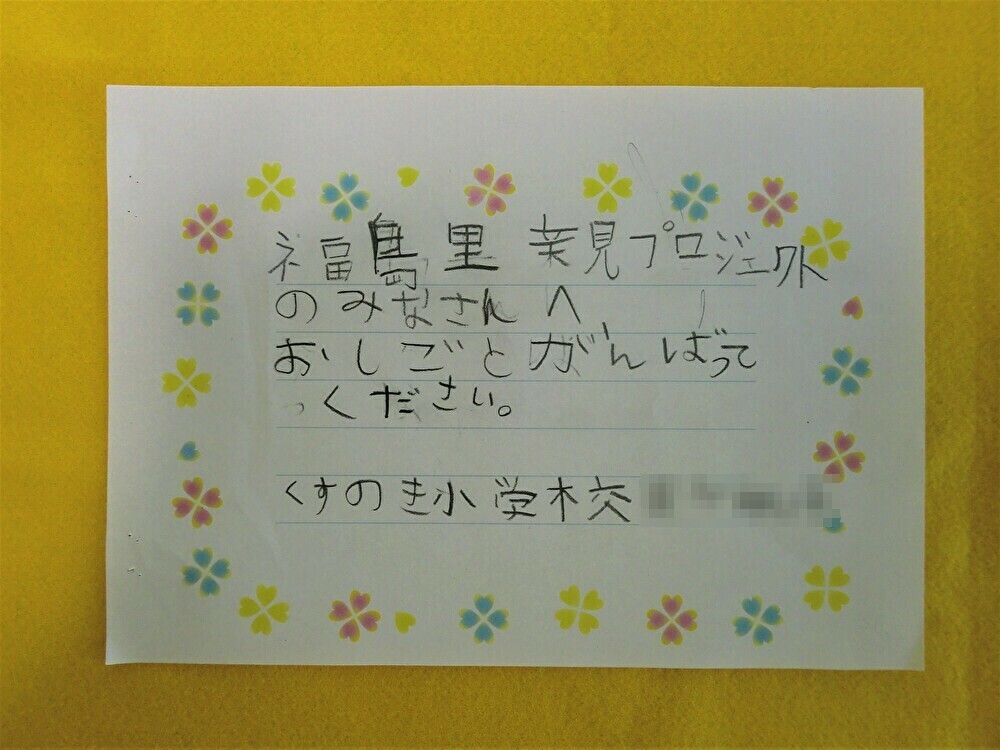 福島里発見プロジェクト
のみなさんへ
おしごとがんばって
ください。
くすのき小学校